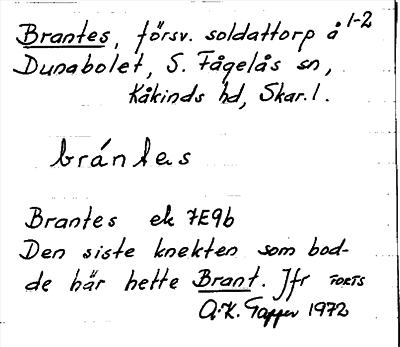 Brantes, försv. soldattorp å 1-2
Dunabolet, S. Fågelås sn,
Kåkinds hd, Skar. l.
brántes
Brantes ek 7E9b
Den siste knekten som bod-
de här hette Brant. Jfr FORTS
A.K. 1972